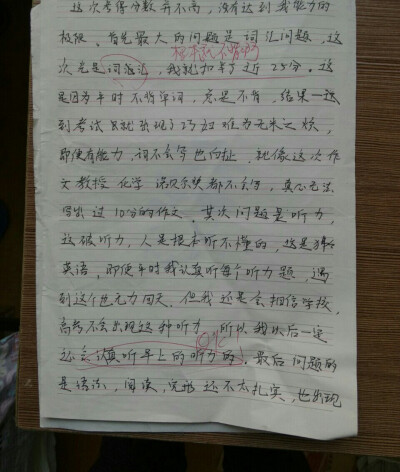 这次考得分数并不高，没有达到我能力的
极限。首先最大的问题是词汇问题，这
根本就不背啊
次光是词汇，我就扣半了近25分。这
是因为平时不背单词，总是不背，结果一遇
到考试就出现了巧妇难为无米之炊，
即使有能力，词不会写也白扯，就像这次作
文教授 化学 诺贝尔奖都不会写，真心无法
写出过10分的作文。其次问题是听力，
这破听力，人是根本听不懂的，这是
英语，即使平时我认真听每个听力题，遇
到这个也无力回天。但我还是会相信学校，
高考不会出现这种听力，所以我以后一定
OK
还会认真听早上的听力的。最后问题的
是语法，阅读，完形 还不太扎实，也出现